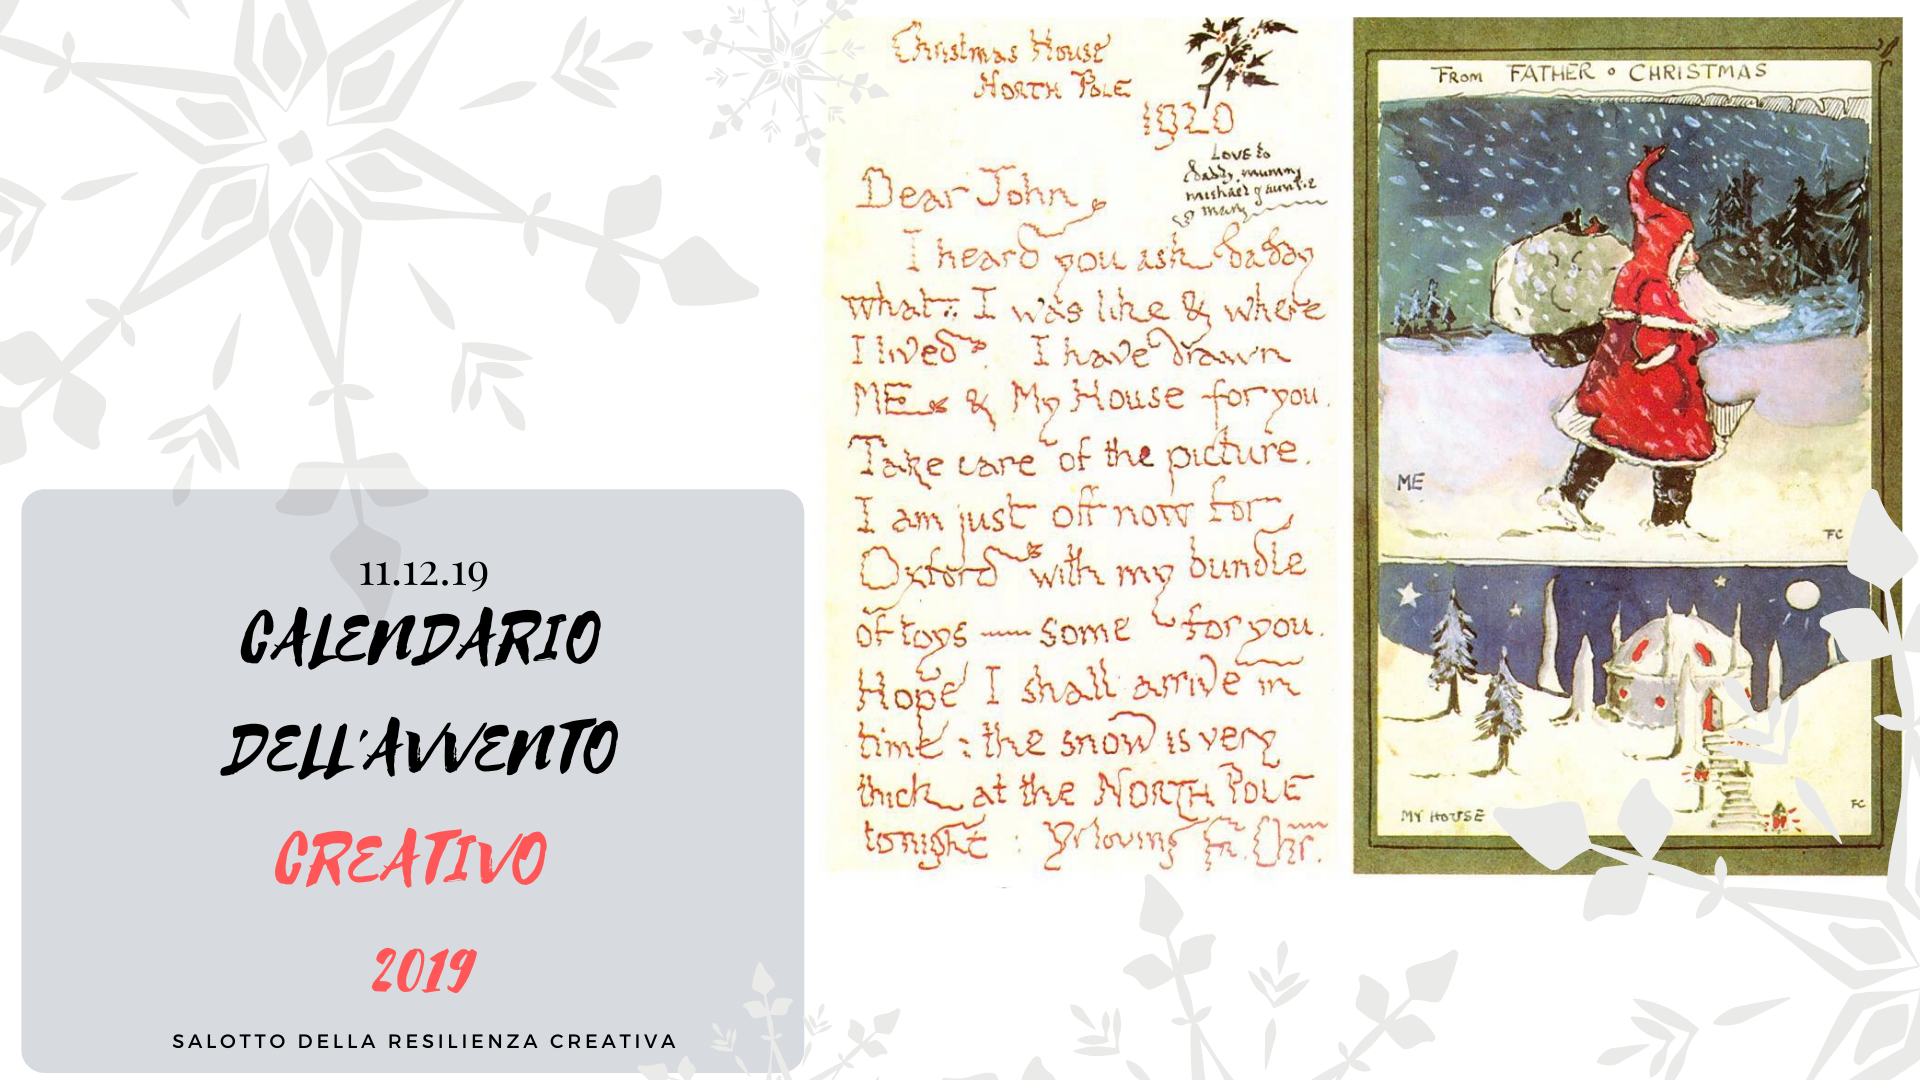 11.12.19
CALENDARIO
DELL'AVVENTO
CREATIVO
2019
SALOTTO DELLA RESILIENZA CREATIVA
Christmas House
NORTH POLE
1920
Love to
daddy, mummy
michael & auntie
mary
Dear John,
I heard you ask daddy
what I was like & where
I lived. I have drawn
ME & My House for you.
Take care of the picture.
I am just off now for
Oxford with my bundle
of toys — some for you.
Hope I shall arrive in
time : the snow is very
thick at the NORTH POLE
tonight : Yr loving Fr. Chr.
FROM FATHER • CHRISTMAS
ME
FC
MY HOUSE
FC